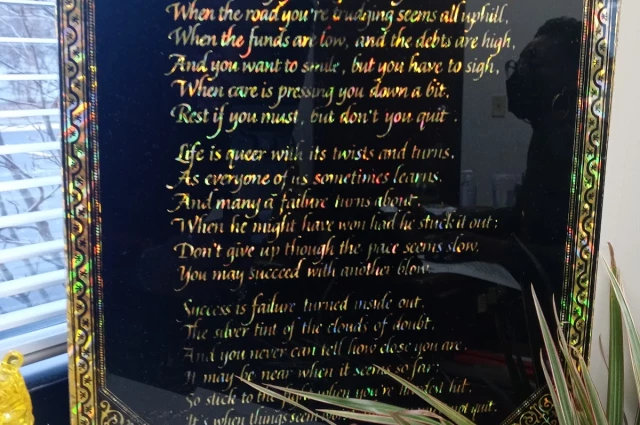 When the road you're trudging seems all uphill,
When the funds are low, and the debts are high,
And you want to smile, but you have to sigh,
When care is pressing you down a bit,
Rest if you must, but don't you quit.
Life is queer with its twists and turns,
As everyone of us sometimes learns,
And many a failure turns about,
When he might have won had he stuck it out;
Don't give up though the pace seems slow,
You may succeed with another blow.
Success is failure turned inside out,
The silver tint of the clouds of doubt,
And you never can tell how close you are,
It may be near when it seems so far;
So stick to the fight when you're hardest hit,
It's when things seem not quit.